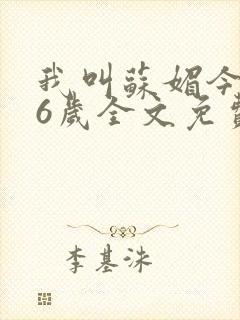 我叫蘇媚今
6歲全文免費
李基洙